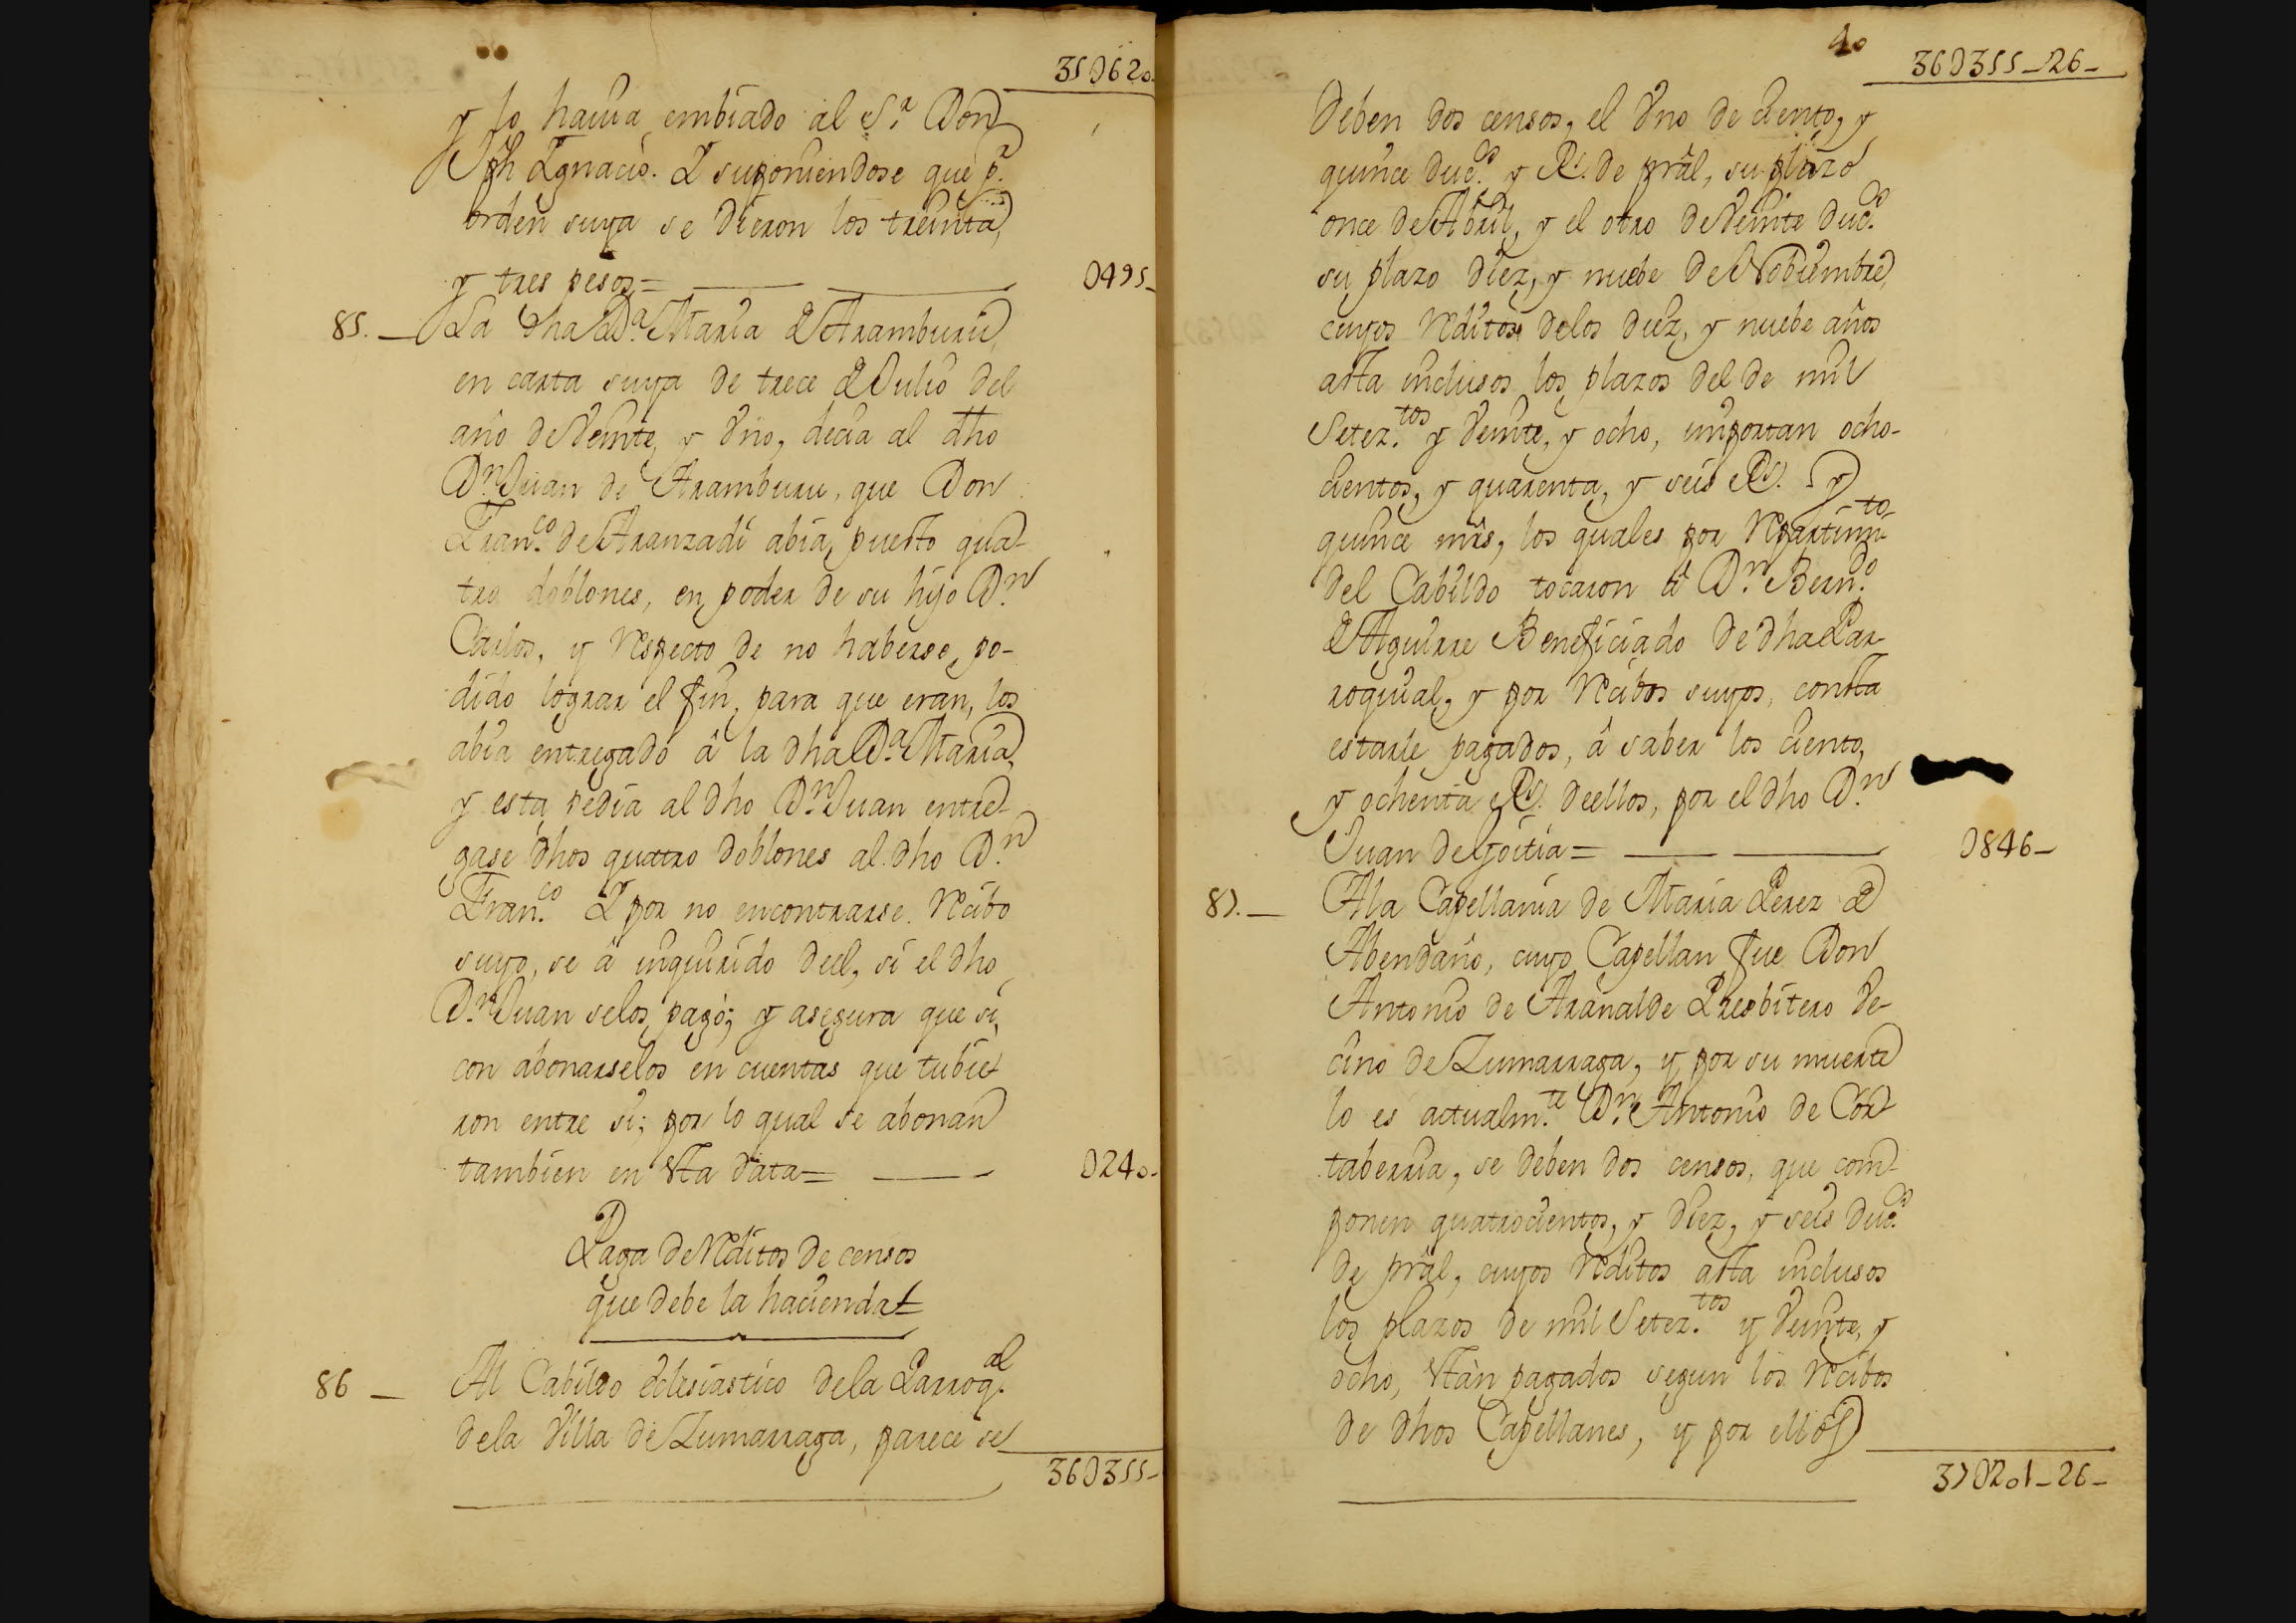 35D620
y lo havia embiado al S.r Don
Jph Ygnacio. Y suponiendose que p.r
orden suya se dieron los treinta,
y tres pesos= D495_
85. _ La dha D.a Maria de Aramburu,
en carta suya de trece de Julio del
año de Veinte, y Vno, decia al dho
D.n Juan de Aramburu, que Don
Fran.co de Aranzadi abia puesto qua-
tro doblones, en poder de su hijo D.n
Carlos, y Respecto de no haberse po-
dido lograr el fin, para que eran, los
abia entregado â la dha D.a Maria,
y esta pedia al dho D.n Juan entre-
gase dhos quatro doblones al dho D.n
Fran.co Y por no encontrarse Recibo
suyo, se â inquirido del, si el dho
D.n Juan selos pagó; y asegura que si,
con abonarselos en cuentas que tubie-
ron entre si; por lo qual se abonan
tambien en Esta data= D240-
Paga de Reditos de censos
que debe la hacienda=
86 _ Al Cabildo eclesiastico dela Parroq.al
dela Villa de Zumarraga, parece se
36D355-
40
36D355_26_
Deben dos censos, el Vno de ciento, y
quince duc.s y Rs. de prâl, su plazo
once de Abril, y el otro de Veinte duc.s
su plazo diez, y nuebe de Nobiembre,
cuyos Reditos delos diez, y nuebe años
asta inclusos los plazos del de mil
Setez.tos y Veinte, y ocho, importan ocho-
cientos, y quarenta, y seis Rs. y
quince mrs, los quales por Repartimi.to
del Cabildo tocaron â D.n Bern.do
de Aguirre Beneficiado de dha Par-
roquial, y por Recibos suyos, consta
estarle pagados, â saber los ciento,
y ochenta Rs. deellos, por el dho D.n
Juan de Goitia= D846_
87. _ A la Capellania de Maria Perez de
Abendaño, cuyo Capellan fue Don
Antonio de Aranalde Presbitero Ve-
cino de Zumarraga, y por su muerte
lo es actualm.te D.n Antonio de Cor-
taberria, se deben dos censos, que com-
ponen quatrocientos, y diez, y seis duc.s
de prâl, cuyos Reditos asta inclusos
los plazos de mil Setez.tos y Veinte, y
ocho, Están pagados segun los Recibos
de dhos Capellanes, y por ellos
37D201_26_